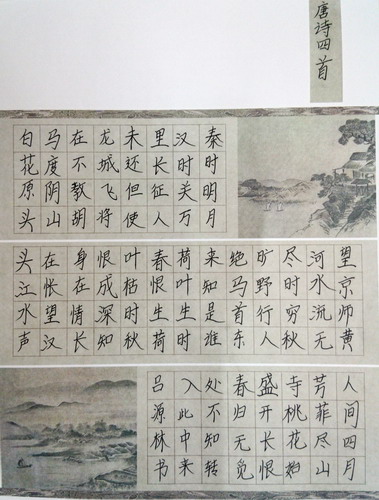 唐诗四首
秦时明月
汉时关万
里长征人
未还但使
龙城飞将
在不教胡
马度阴山
白花原头
望京师黄
河水流无
尽时穷秋
旷野行人
绝马首东
来知是谁
荷叶生时
春恨生荷
叶枯时秋
恨成深知
身在情长
在怅望汉
头江水声
人间四月
芳菲尽山
寺桃花始
盛开长恨
春归无觅
处不知转
入此中来
吕源林书